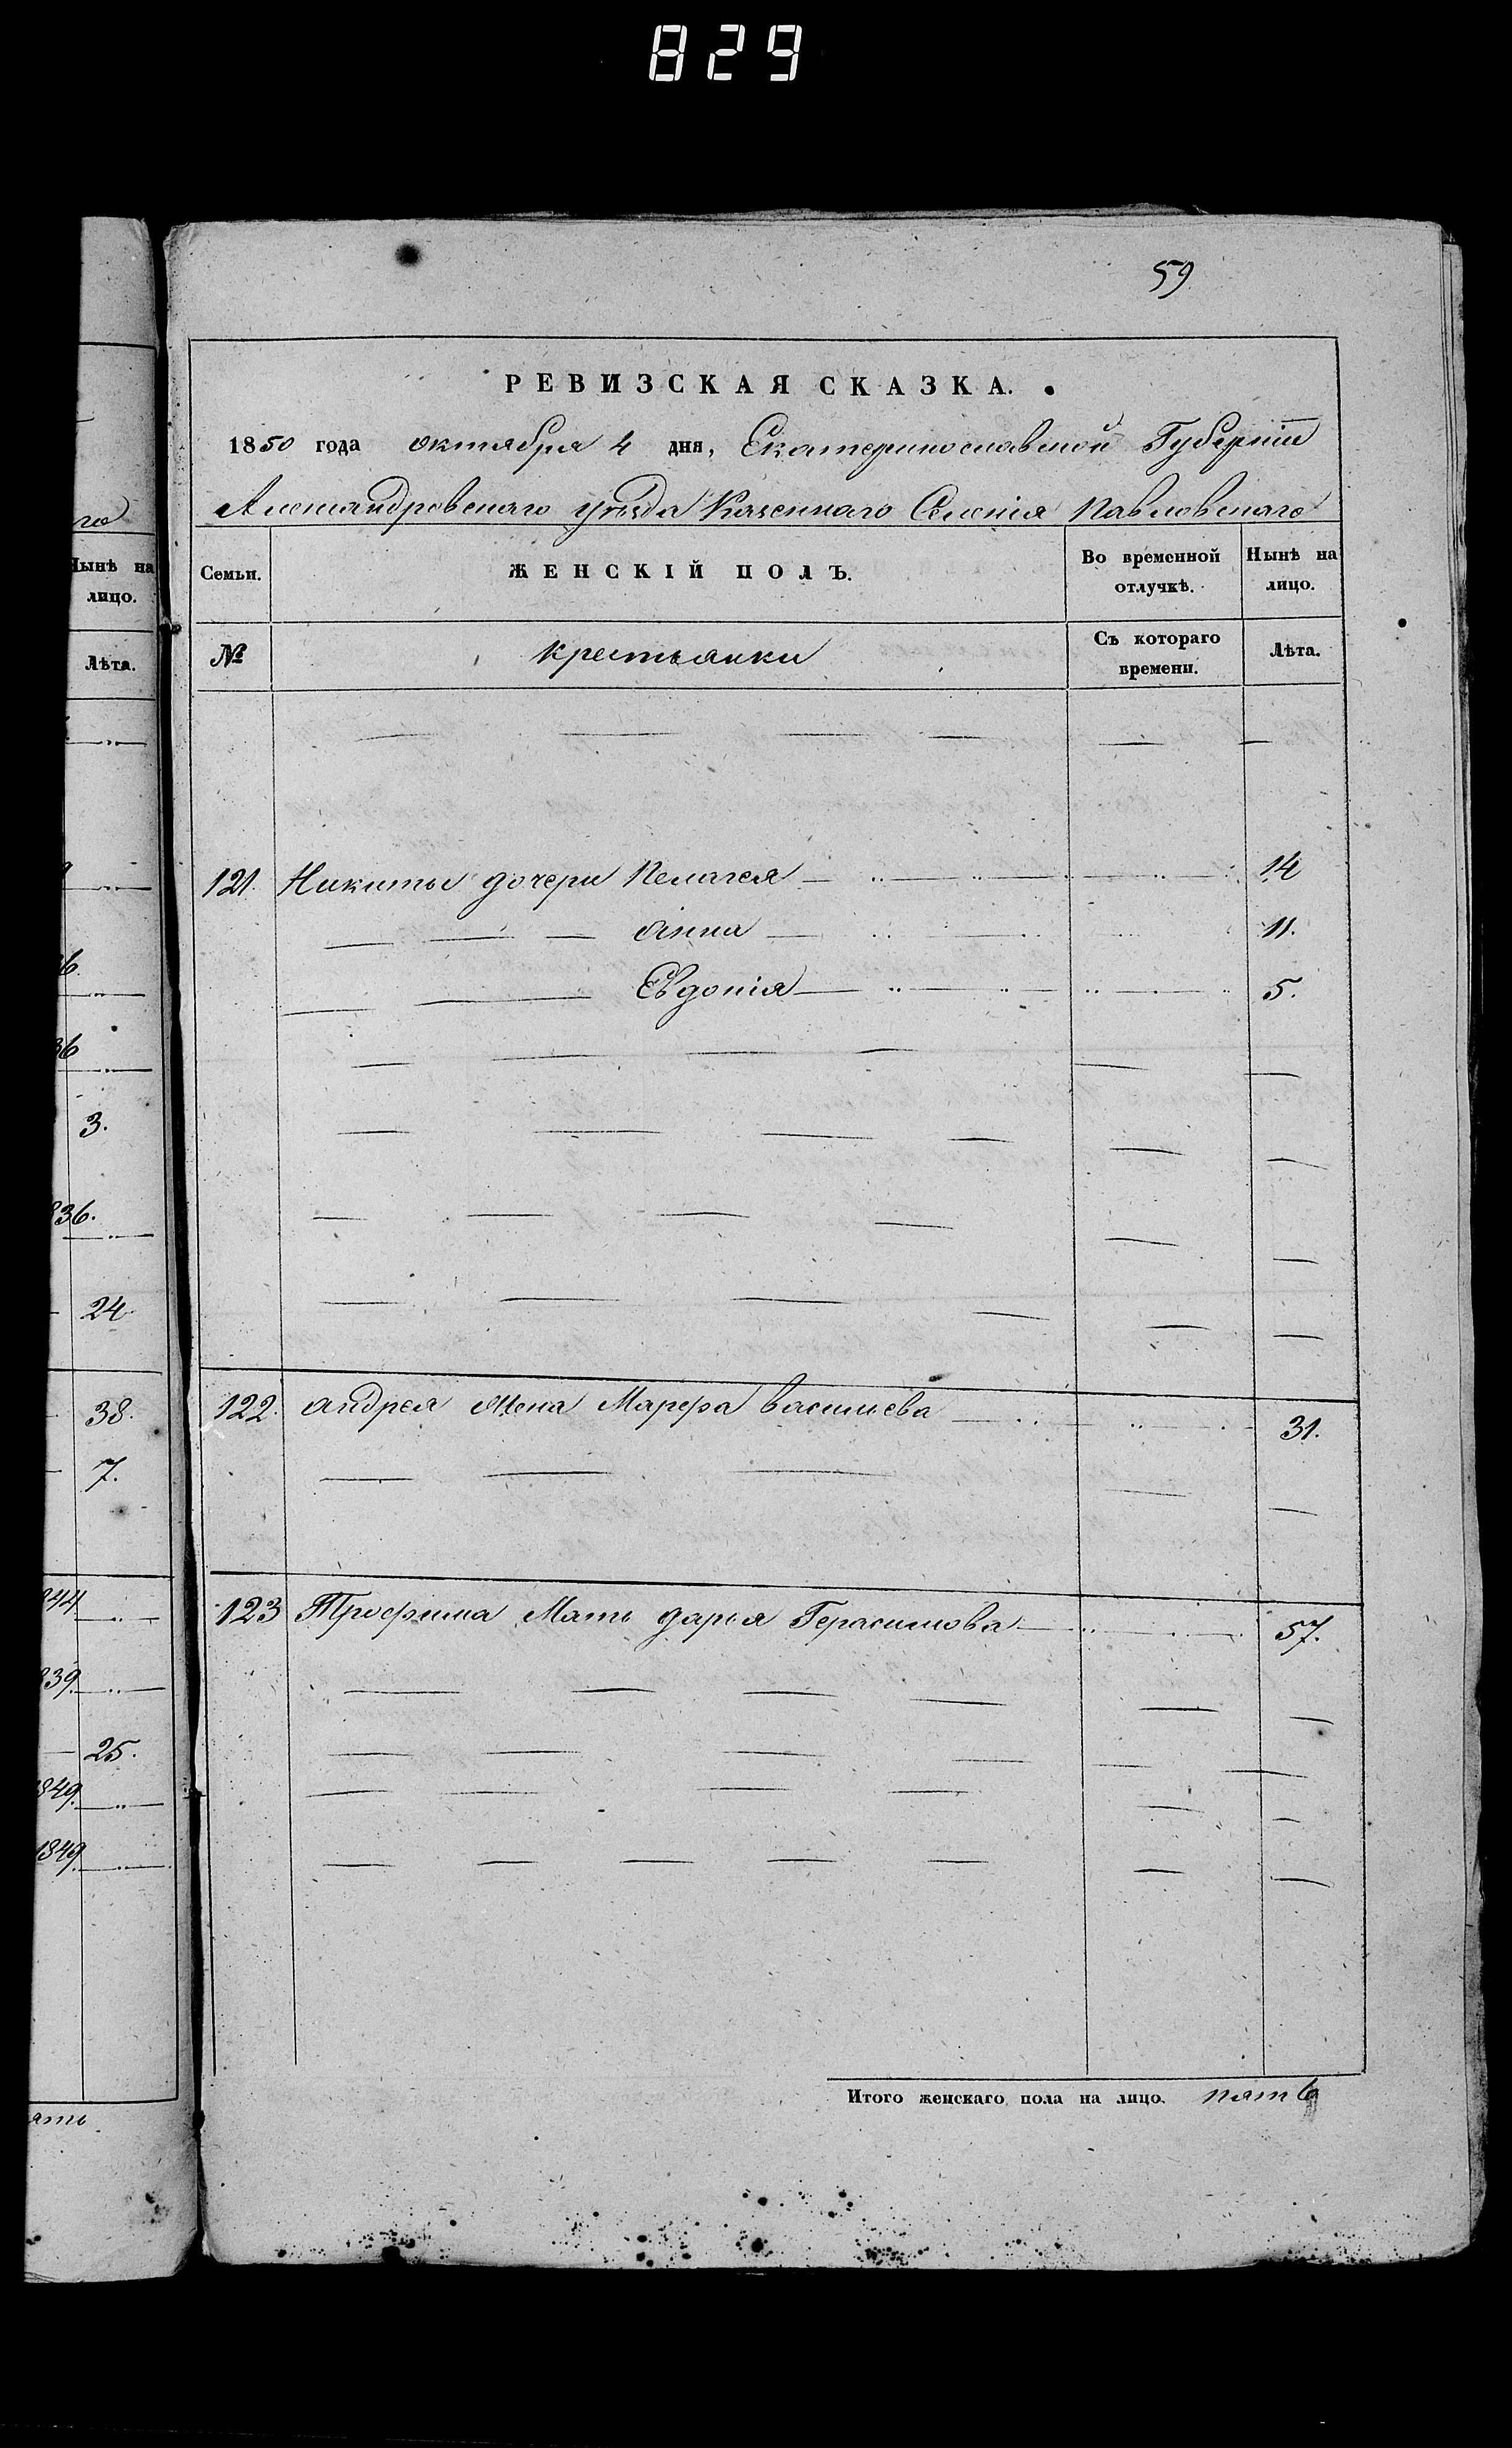 829
59
РЕВИЗСКАЯ СКАЗКА.
1850 года октября 4 дня, Екатеринославской Губерніи
Александровскаго уѣзда Казеннаго Селенія Павловскаго
го
Нынѣ на лицо.
Лѣта.
Семьи.
ЖЕНСКІЙ ПОЛЪ.
Во временной отлучкѣ.
Нынѣ на лицо.
№
крестьянки
Съ котораго времени.
Лѣта.
121. Никиты дочери Пелагея 14
Анна 11.
Евдокія 5.
36
3.
836.
24
122. Андрея жена Марфа Васильева 31.
38.
7.
123 Трофима Мать Дарья Герасимова 57.
844
839.
25.
849.
1849.
Итого женскаго пола на лицо. пять
ять